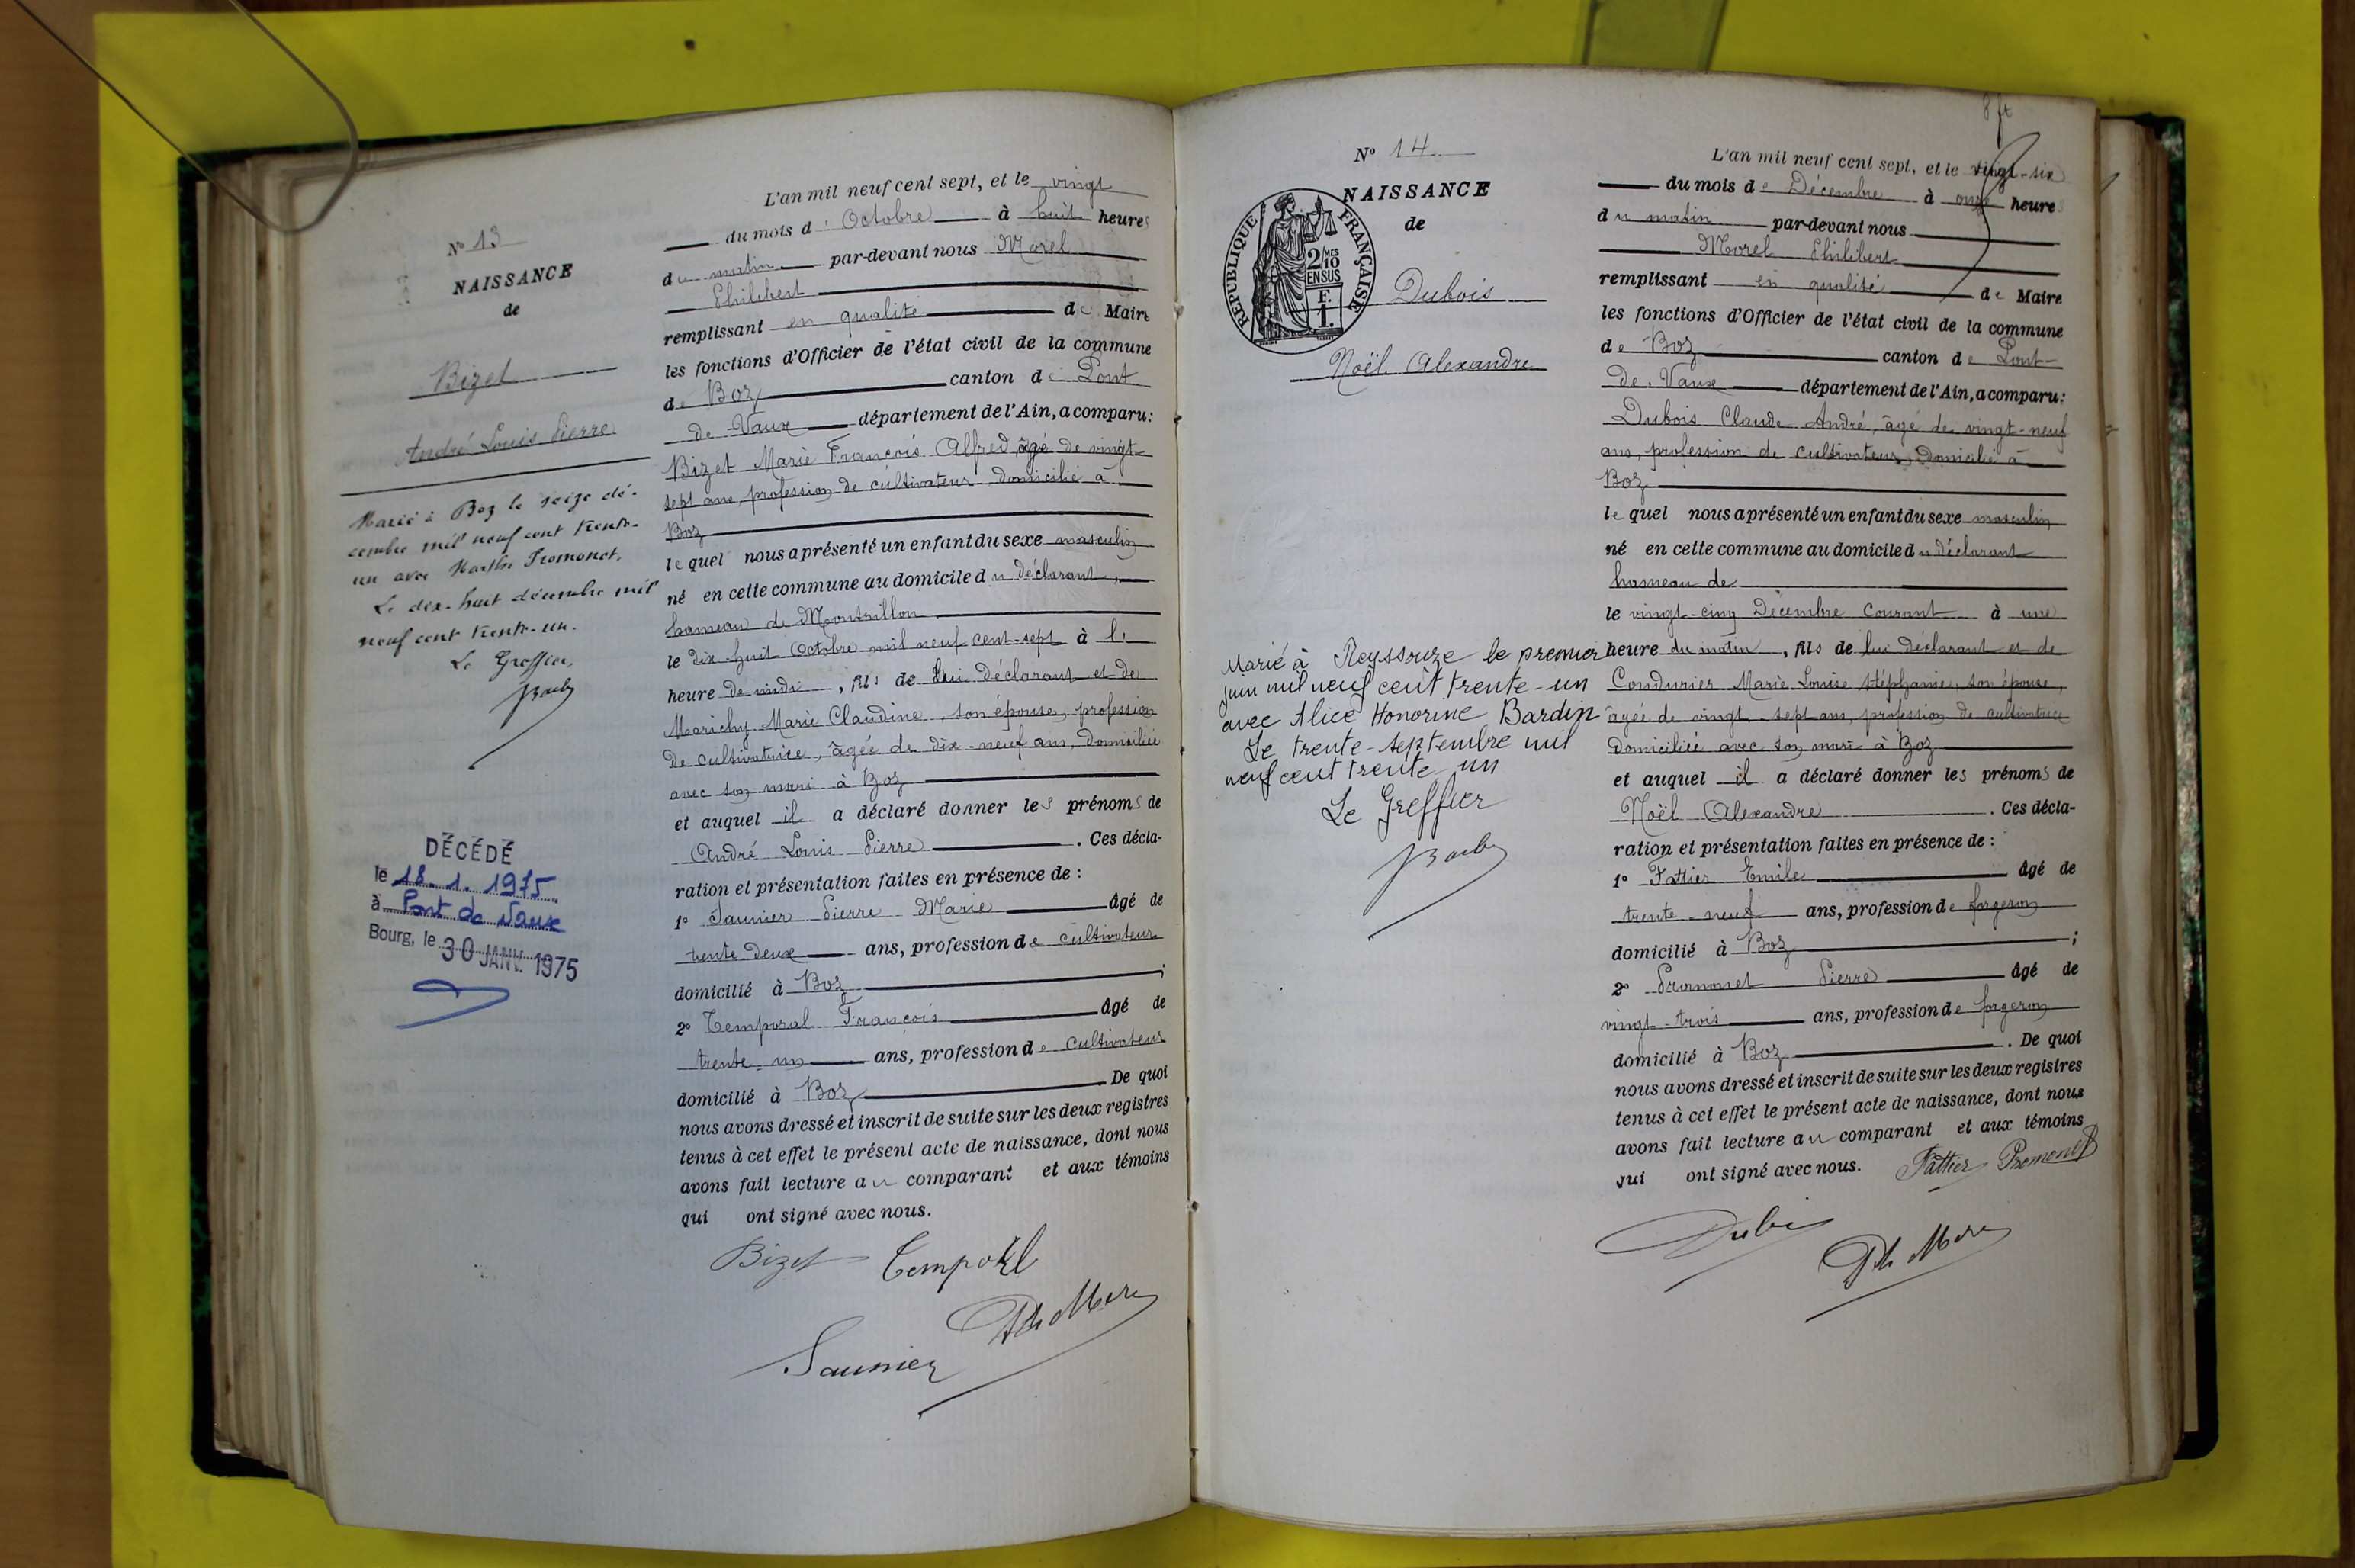 N° 13
NAISSANCE
de
Bizet
André Louis Pierre
Marié à Boz le seize dé-
cembre mil neuf cent trente-
un avec Marthe Promonet.
Le dix-huit décembre mil
neuf cent trente-un.
Le Greffier,
DÉCÉDÉ
le 18.1.1975
à Pont de Vaux
Bourg, le 30 JANV. 1975
L'an mil neuf cent sept, et le vingt
du mois d'Octobre à huit heures
du matin par-devant nous Morel
Philibert
remplissant en qualité de Maire
les fonctions d'Officier de l'état civil de la commune
de Boz canton de Pont
de Vaux département de l'Ain, a comparu:
Bizet Marie François Alfred, âgé de vingt-
sept ans, profession de cultivateur, domicilié à
Boz
le quel nous a présenté un enfant du sexe masculin
né en cette commune au domicile du déclarant,
hameau de Montrillon
le dix-huit Octobre mil neuf cent-sept à l'
heure de midi, fils de lui déclarant et de
Marichy Marie Claudine, son épouse, profession
de cultivatrice, âgée de dix-neuf ans, domiciliée
avec son mari à Boz
et auquel il a déclaré donner les prénoms de
André Louis Pierre. Ces décla-
ration et présentation faites en présence de :
1° Saunier Pierre Marie âgé de
trente-deux ans, profession de cultivateur
domicilié à Boz ;
2° Temporal François âgé de
trente-un ans, profession de cultivateur
domicilié à Boz De quoi
nous avons dressé et inscrit de suite sur les deux registres
tenus à cet effet le présent acte de naissance, dont nous
avons fait lecture au comparant et aux témoins
qui ont signé avec nous.
Bizet Temporal
Ph Morel
Saunier
N° 14
NAISSANCE
de
RÉPUBLIQUE FRANÇAISE
2/10 MES
EN SUS
F.
1.
Dubois
Noël Alexandre
Marié à Reyssouze le premier
juin mil neuf cent trente-un
avec Alice Honorine Bardin
Le trente-septembre mil
neuf cent trente-un
Le Greffier
L'an mil neuf cent sept, et le vingt-six
du mois de Décembre à onze heures
du matin par-devant nous
Morel Philibert
remplissant en qualité de Maire
les fonctions d'Officier de l'état civil de la commune
de Boz canton de Pont-
de-Vaux département de l'Ain, a comparu:
Dubois Claude André, âgé de vingt-neuf
ans, profession de cultivateur, domicilié à
Boz
le quel nous a présenté un enfant du sexe masculin
né en cette commune au domicile du déclarant
hameau de
le vingt-cinq Décembre courant à une
heure du matin, fils de lui déclarant et de
Condurier Marie Louise Stéphanie, son épouse,
âgée de vingt-sept ans, profession de cultivatrice
domiciliée avec son mari à Boz
et auquel il a déclaré donner les prénoms de
Noël Alexandre. Ces décla-
ration et présentation faites en présence de :
1° Fattier Emile âgé de
trente-neuf ans, profession de forgeron
domicilié à Boz ;
2° Promonet Pierre âgé de
vingt-trois ans, profession de forgeron
domicilié à Boz. De quoi
nous avons dressé et inscrit de suite sur les deux registres
tenus à cet effet le présent acte de naissance, dont nous
avons fait lecture au comparant et aux témoins
qui ont signé avec nous. Fattier Promonet
Dubois
Ph Morel